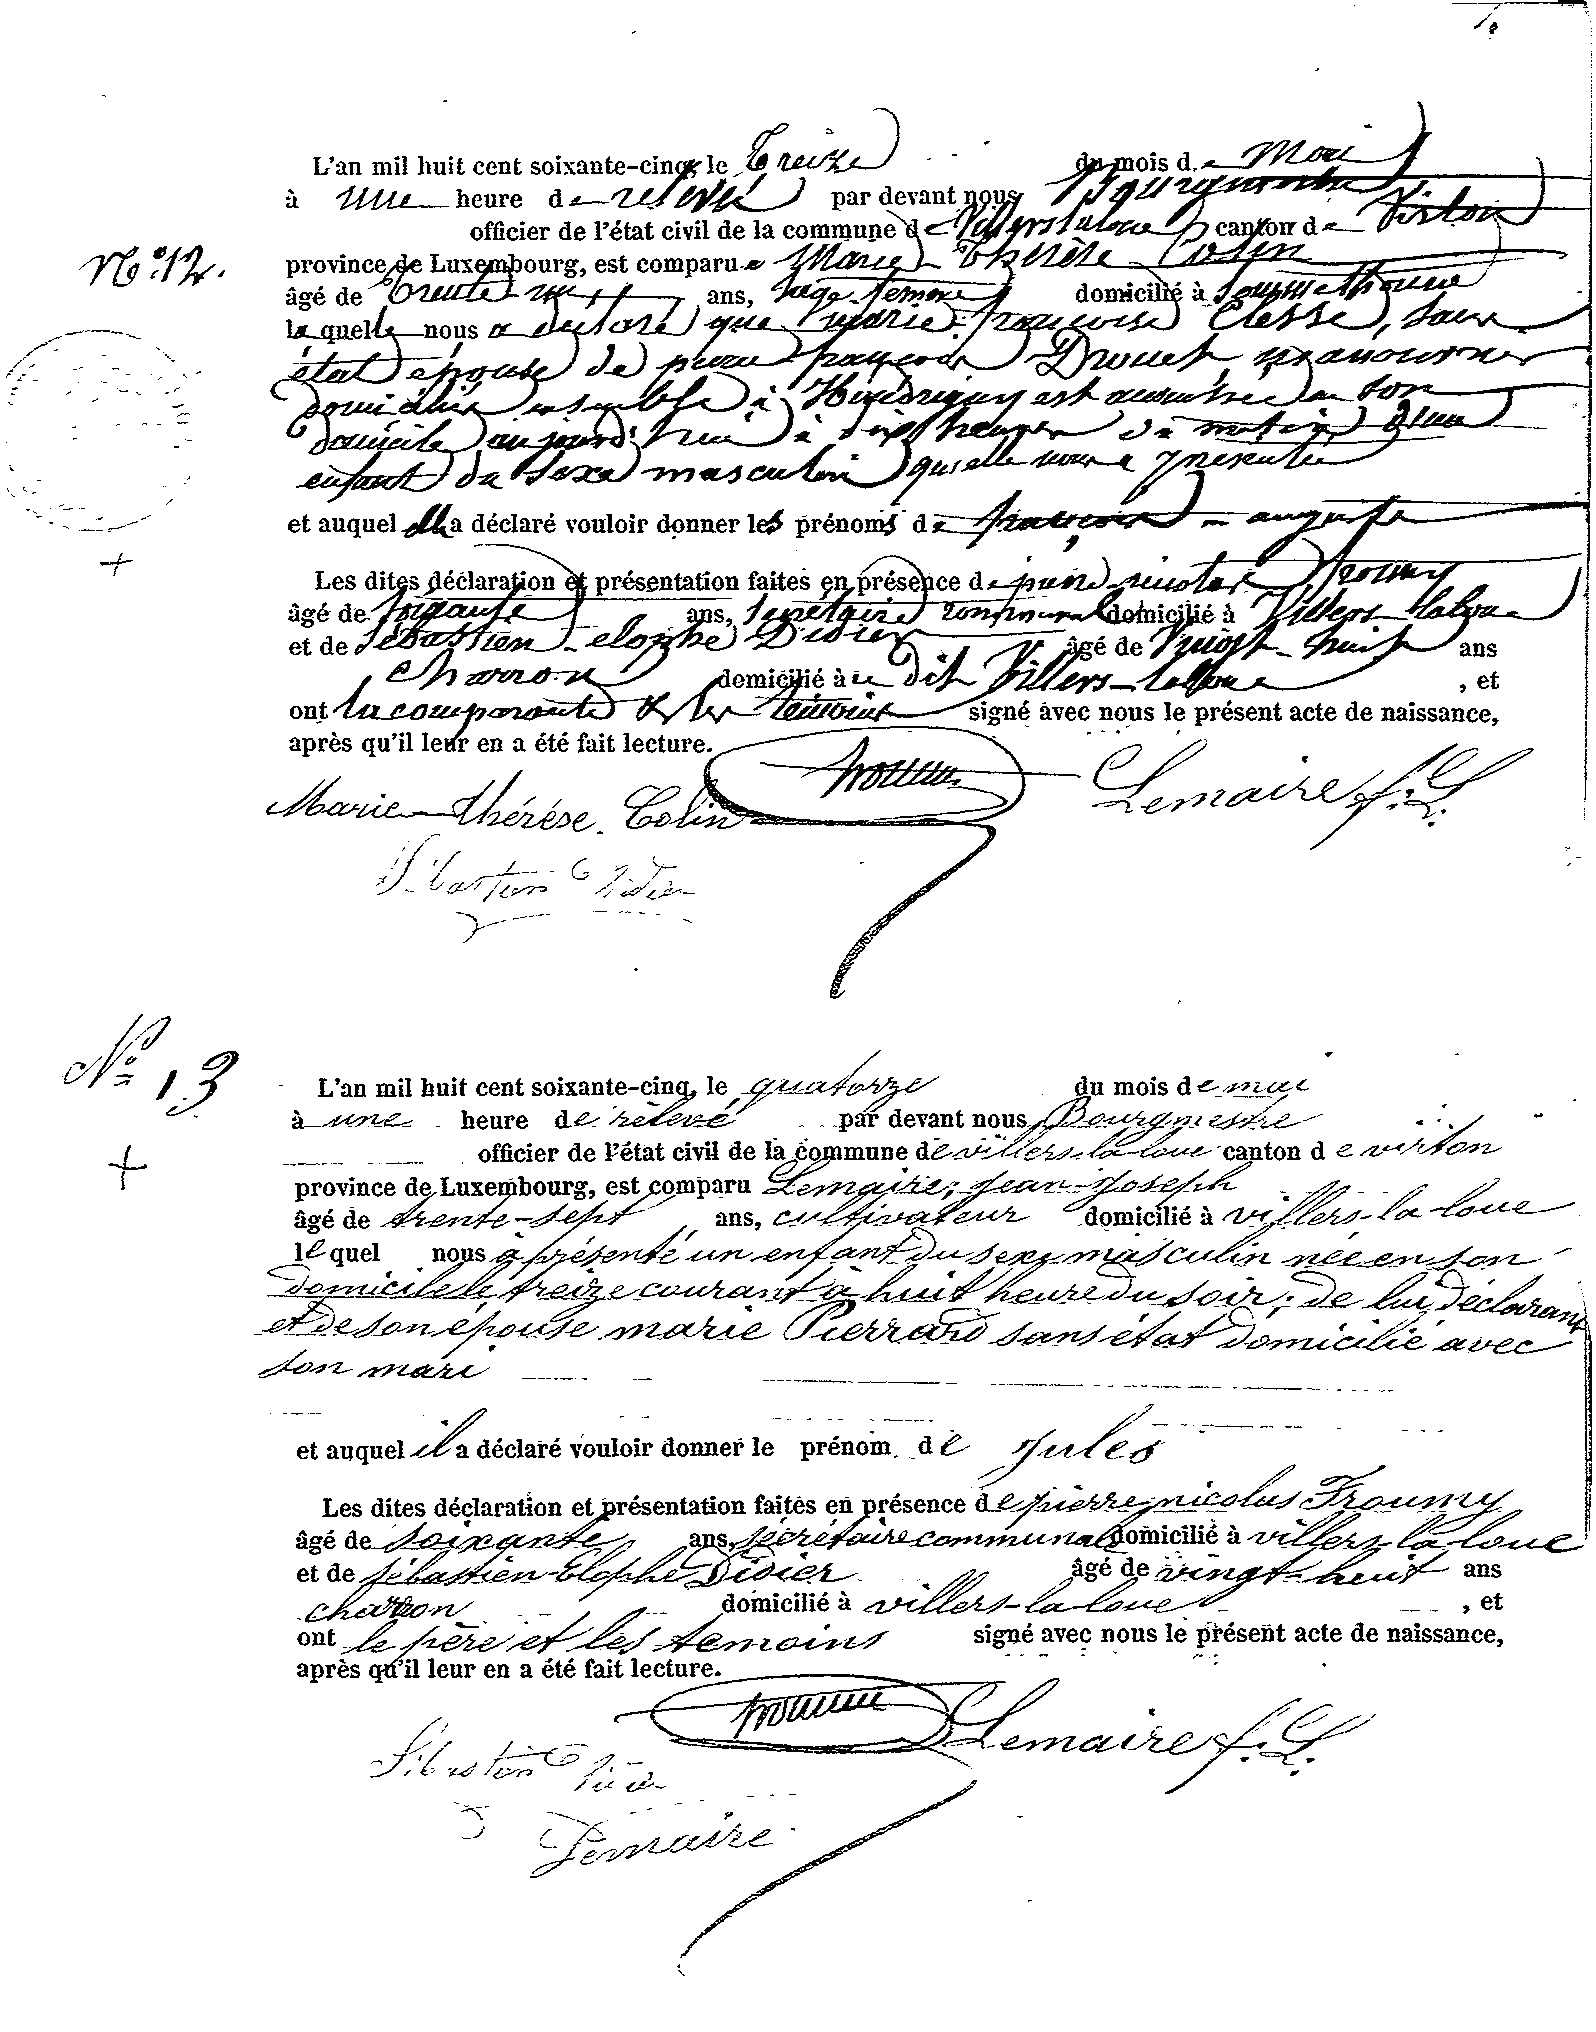 L'an mil huit cent soixante-cinq, le Treize du mois de Mai
à une heure de relevé par devant nous Bourgmestre
officier de l'état civil de la commune de Villers laloue canton de Virton
N° 12.
province de Luxembourg, est comparue Marie Thérèse Colin
âgé de Trente ans, sage femme domicilié à Sommethonne
la quelle nous a déclaré que Marie françoise Clesse, sans
état épouse de pierre françois Drouet, manouvrier
domiciliés ensemble à Houdrigny est accouchée en son
domicile aujourd'hui à dix heures du matin d'un
enfant du sexe masculin qu'elle nous a présenté
et auquel elle a déclaré vouloir donner les prénoms de françois - auguste
Les dites déclaration et présentation faites en présence de pierre nicolas froumy
âgé de soixante ans, secrétaire communal domicilié à Villers-laloue
et de Sébastien-elophe Didier âgé de vingt-huit ans
charron domicilié à dit Villers-laloue , et
ont la comparante & les témoins signé avec nous le présent acte de naissance,
après qu'il leur en a été fait lecture.
froumy Lemaire f.f.
Marie-thérése Colin
Sébastien Didier
N° 13
L'an mil huit cent soixante-cinq, le quatorze du mois de mai
à une heure de relevé par devant nous Bourgmestre
officier de l'état civil de la commune de villers-la-loue canton de virton
province de Luxembourg, est comparu Lemaire, jean-joseph
âgé de trente-sept ans, cultivateur domicilié à villers-la-loue
le quel nous à présenté un enfant du sexe masculin née en son
domicile le treize courant à huit heure du soir; de lui déclarant
et de son épouse marie Pierrard sans état domicilié avec
son mari
et auquel il a déclaré vouloir donner le prénom de jules
Les dites déclaration et présentation faites en présence de pierre nicolas Froumy
âgé de soixante ans, sécrétaire communal domicilié à villers-la-loue
et de sébastien-Elophe Didier âgé de vingt-huit ans
charron domicilié à villers-la-loue , et
ont le père et les temoins signé avec nous le présent acte de naissance,
après qu'il leur en a été fait lecture.
froumy Lemaire f.f.
Sébastien Didier
Lemaire